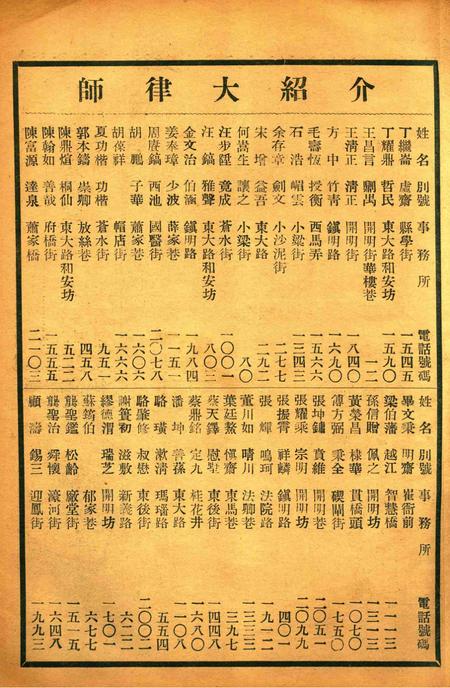 介紹大律師
姓名 別號 事務所 電話號碼
丁繼崙 虛齋 縣學街 一五四五
丁耀鼎 哲民 東大路和安坊 一五九〇
王昌言 剛禹 開明街華樓巷 一二
王清正 清正 開明街 一八四〇
方中 竹青 鎮明路 一六九〇
毛壽恆 授衡 西馬弄 一五六六
石浩 嵋雲 小梁街 一三四三
余存章 劍文 小沙泥街 二七七
宋增 益吾 東大路 二九二
何嵩生 讓之 小梁街 八〇
汪步陞 竟成 蒼水街 一〇〇一
汪鎬 雅聲 東大路和安坊 八〇三
金文治 伯涵 鎮明路 一九八四
姜奉璋 少波 薛家巷 一一五一
周庚鎬 西池 國醫街 二〇七八
胡鵬 子華 蕭家巷 一六〇六
胡葆祥 帽店街 一六六六
夏功楷 功楷 蒼水街 九五一
郭本鑄 崇卿 放絲巷 四五八
陳鼎煊 桐仙 東大路和安坊 五二二
陳翰如 善哉 府橋街 一五五五
陳富源 達泉 蕭家橋 二一〇三
姓名 別號 事務所 電話號碼
畢文秉 明齋 崔衙前 一一一三
梁伯藩 越江 智慧橋 一三一三
孫信贈 佩之 開明坊 一〇七〇
黃榮昌 棣華 貫橋頭 一〇七〇
傅方弼 秉全 碶閘街 一七五〇
張坤鏞 蕢維 開明巷 二〇五一
張耀秉 宗明 開明坊 二〇九九
張振霄 祥麟 鎮明路 四〇一
張輝 鳴珂 法院路 一九一二
董川如 晴川 法卿巷 一三三三
葉廷駿 愼齋 東馬巷 三九七
蔡天鐸 慰堂 東後街 一四四八
蔡鼎銘 定九 桂花井 一六八〇
潘坤 善蓀 東大路 一一〇八
駱璜 漱清 瑪瑙路 五五四
駱肇修 叔懋 東後街 二〇〇二
謝篔初 滋敷 新義路 六二二
繆德渭 瑞芝 開明坊 一七〇一
蘇鶴伯 郁家巷 六七七
龔聖鑑 松齡 廠堂街 一五一五
龔聖治 舜懷 濠河街 一六四八
顧濤 錫三 迎鳳街 一九九三